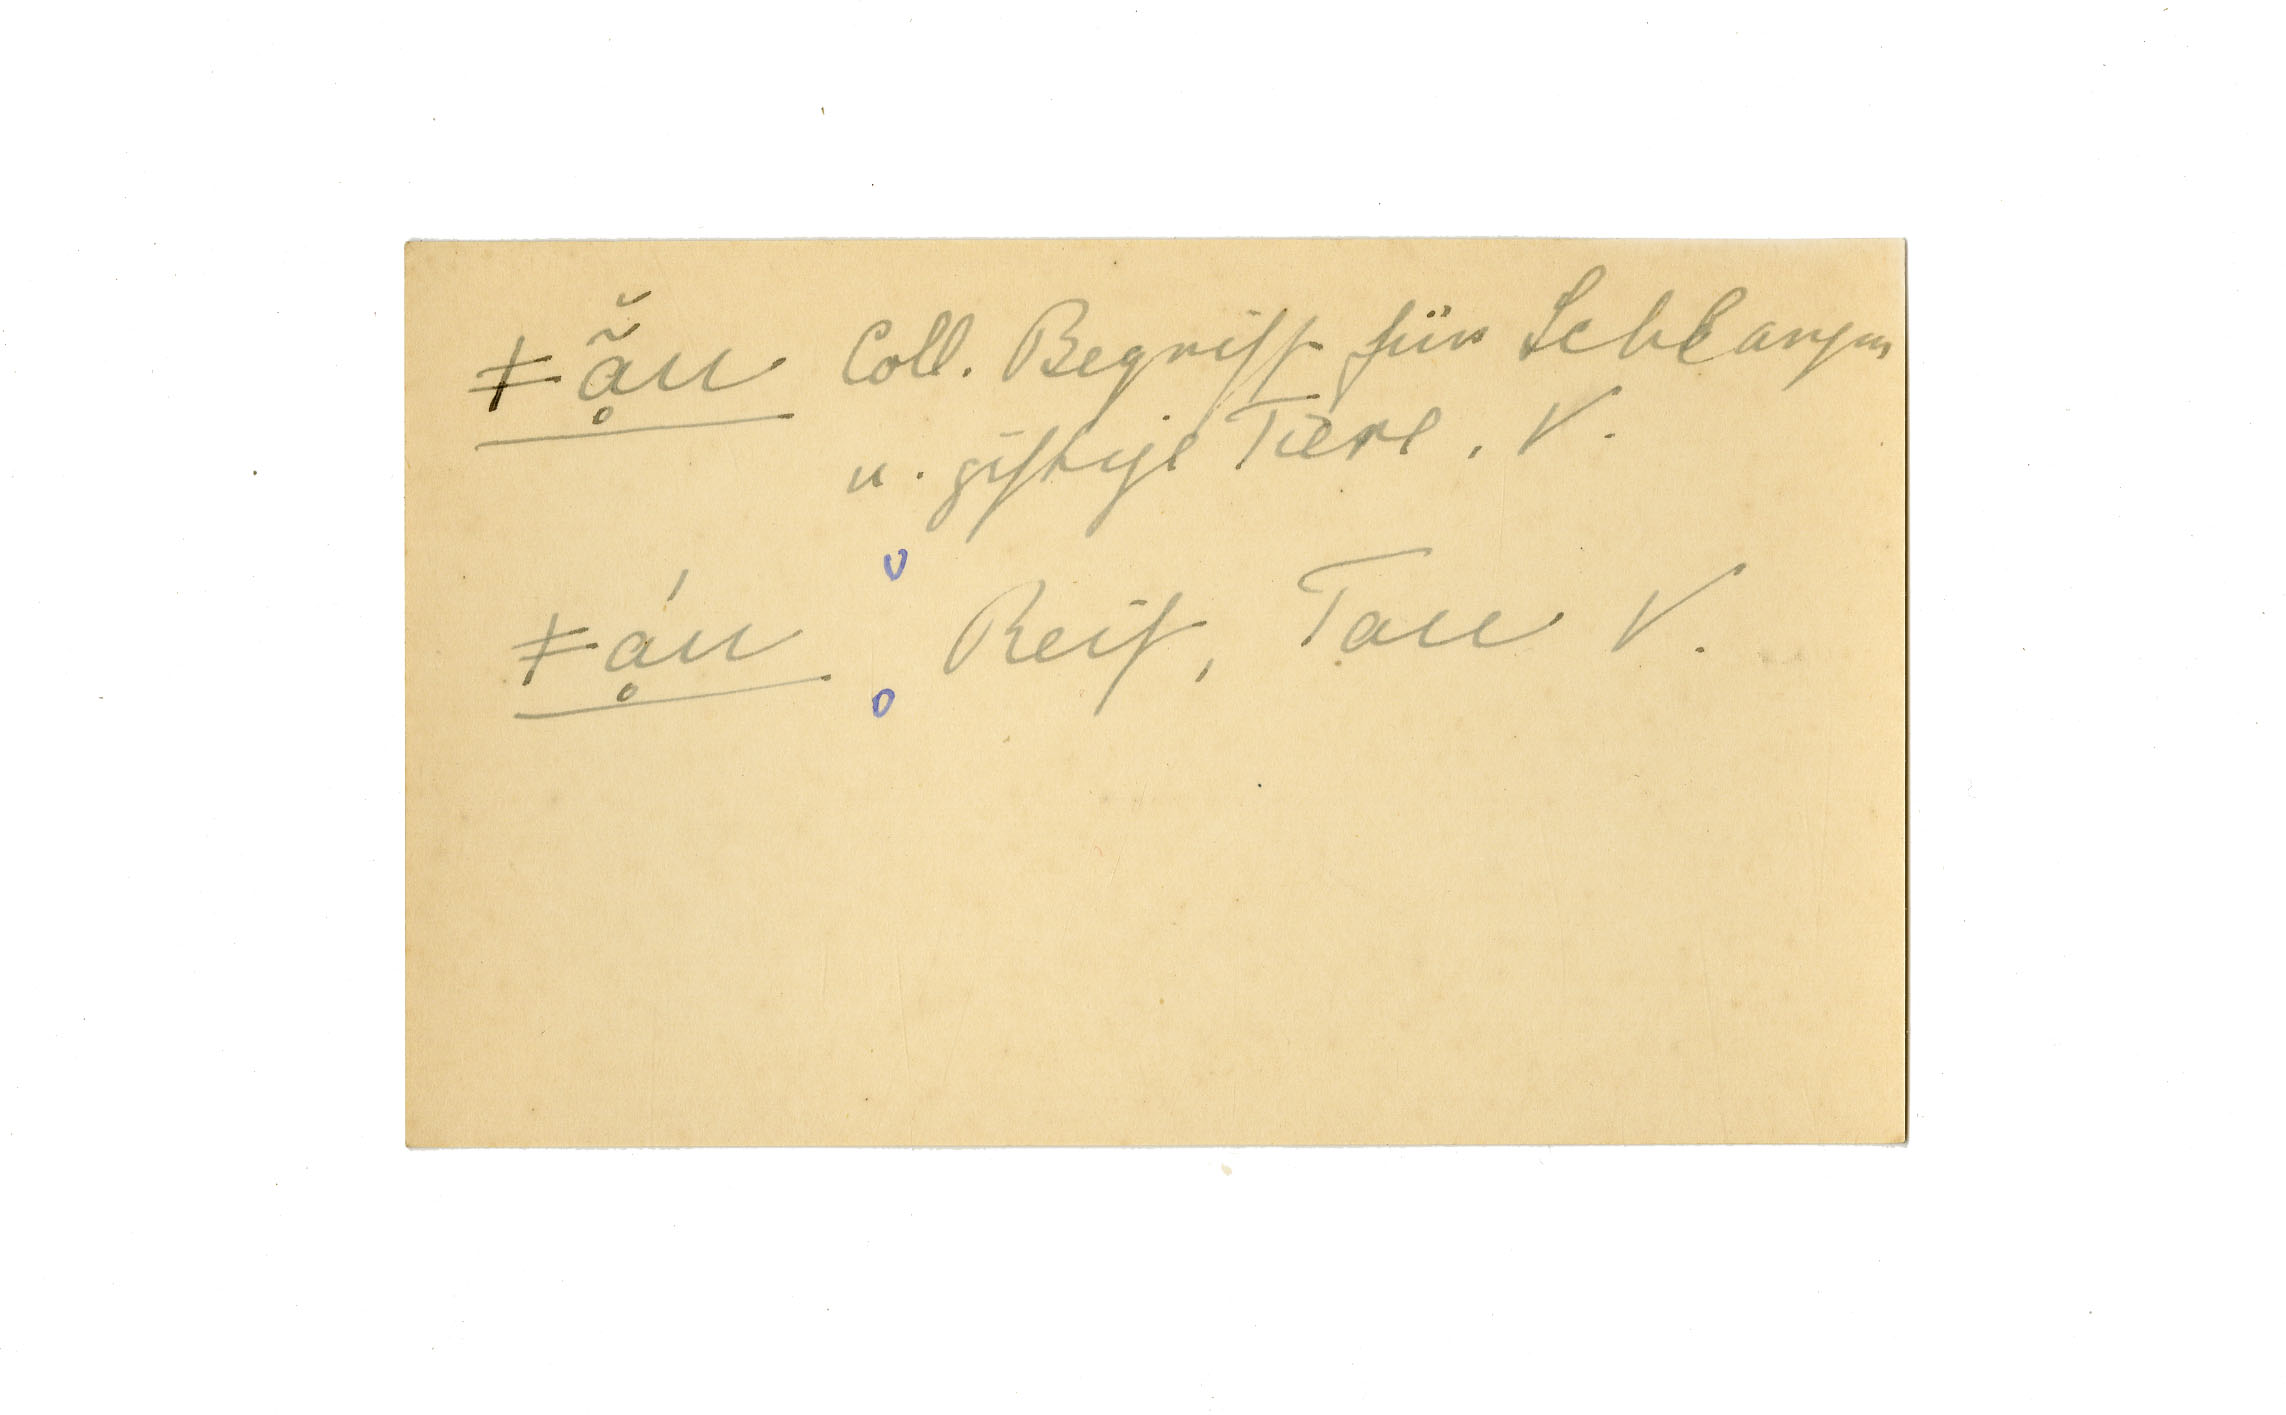 ǂḁ̃̆u Coll. Begriff für Schlangen
u. giftige Tiere. V.
ǂḁ́u Reif, Tau V.